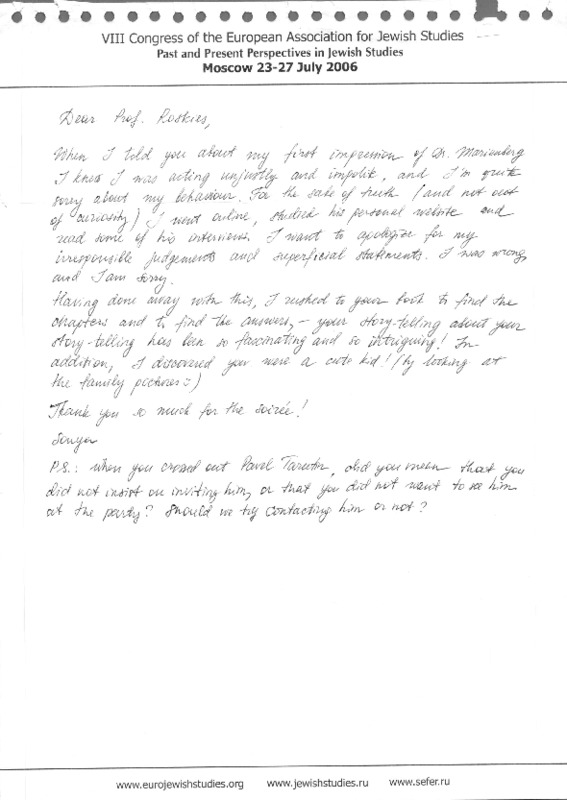 VIII Congress of the European Association for Jewish Studies
Past and Present Perspectives in Jewish Studies
Moscow 23-27 July 2006
Dear Prof. Roskies,
When I told you about my first impression of Dr. Marienberg
I knew I was acting unjustly and impolite, and I'm quite
sorry about my behaviour. For the sake of truth (and not out
of curiosity) I went online, studied his personal website and
read some of his interviews. I want to apologize for my
irresponsible judgements and superficial statements. I was wrong,
and I am sorry.
Having done away with this, I rushed to your book to find the
chapters and to find the answers, – your story-telling about your
story-telling has been so fascinating and so intriguing! In
addition, I discovered you were a cute kid! (by looking at
the family pictures :)
Thank you so much for the soirée!
Sonya
P.S.: when you crossed out Pavel, did you mean that you
did not insist on inviting him, or that you did not want to see him
at the party? Should we try contacting him or not?
www.eurojewishstudies.org www.jewishstudies.ru www.sefer.ru